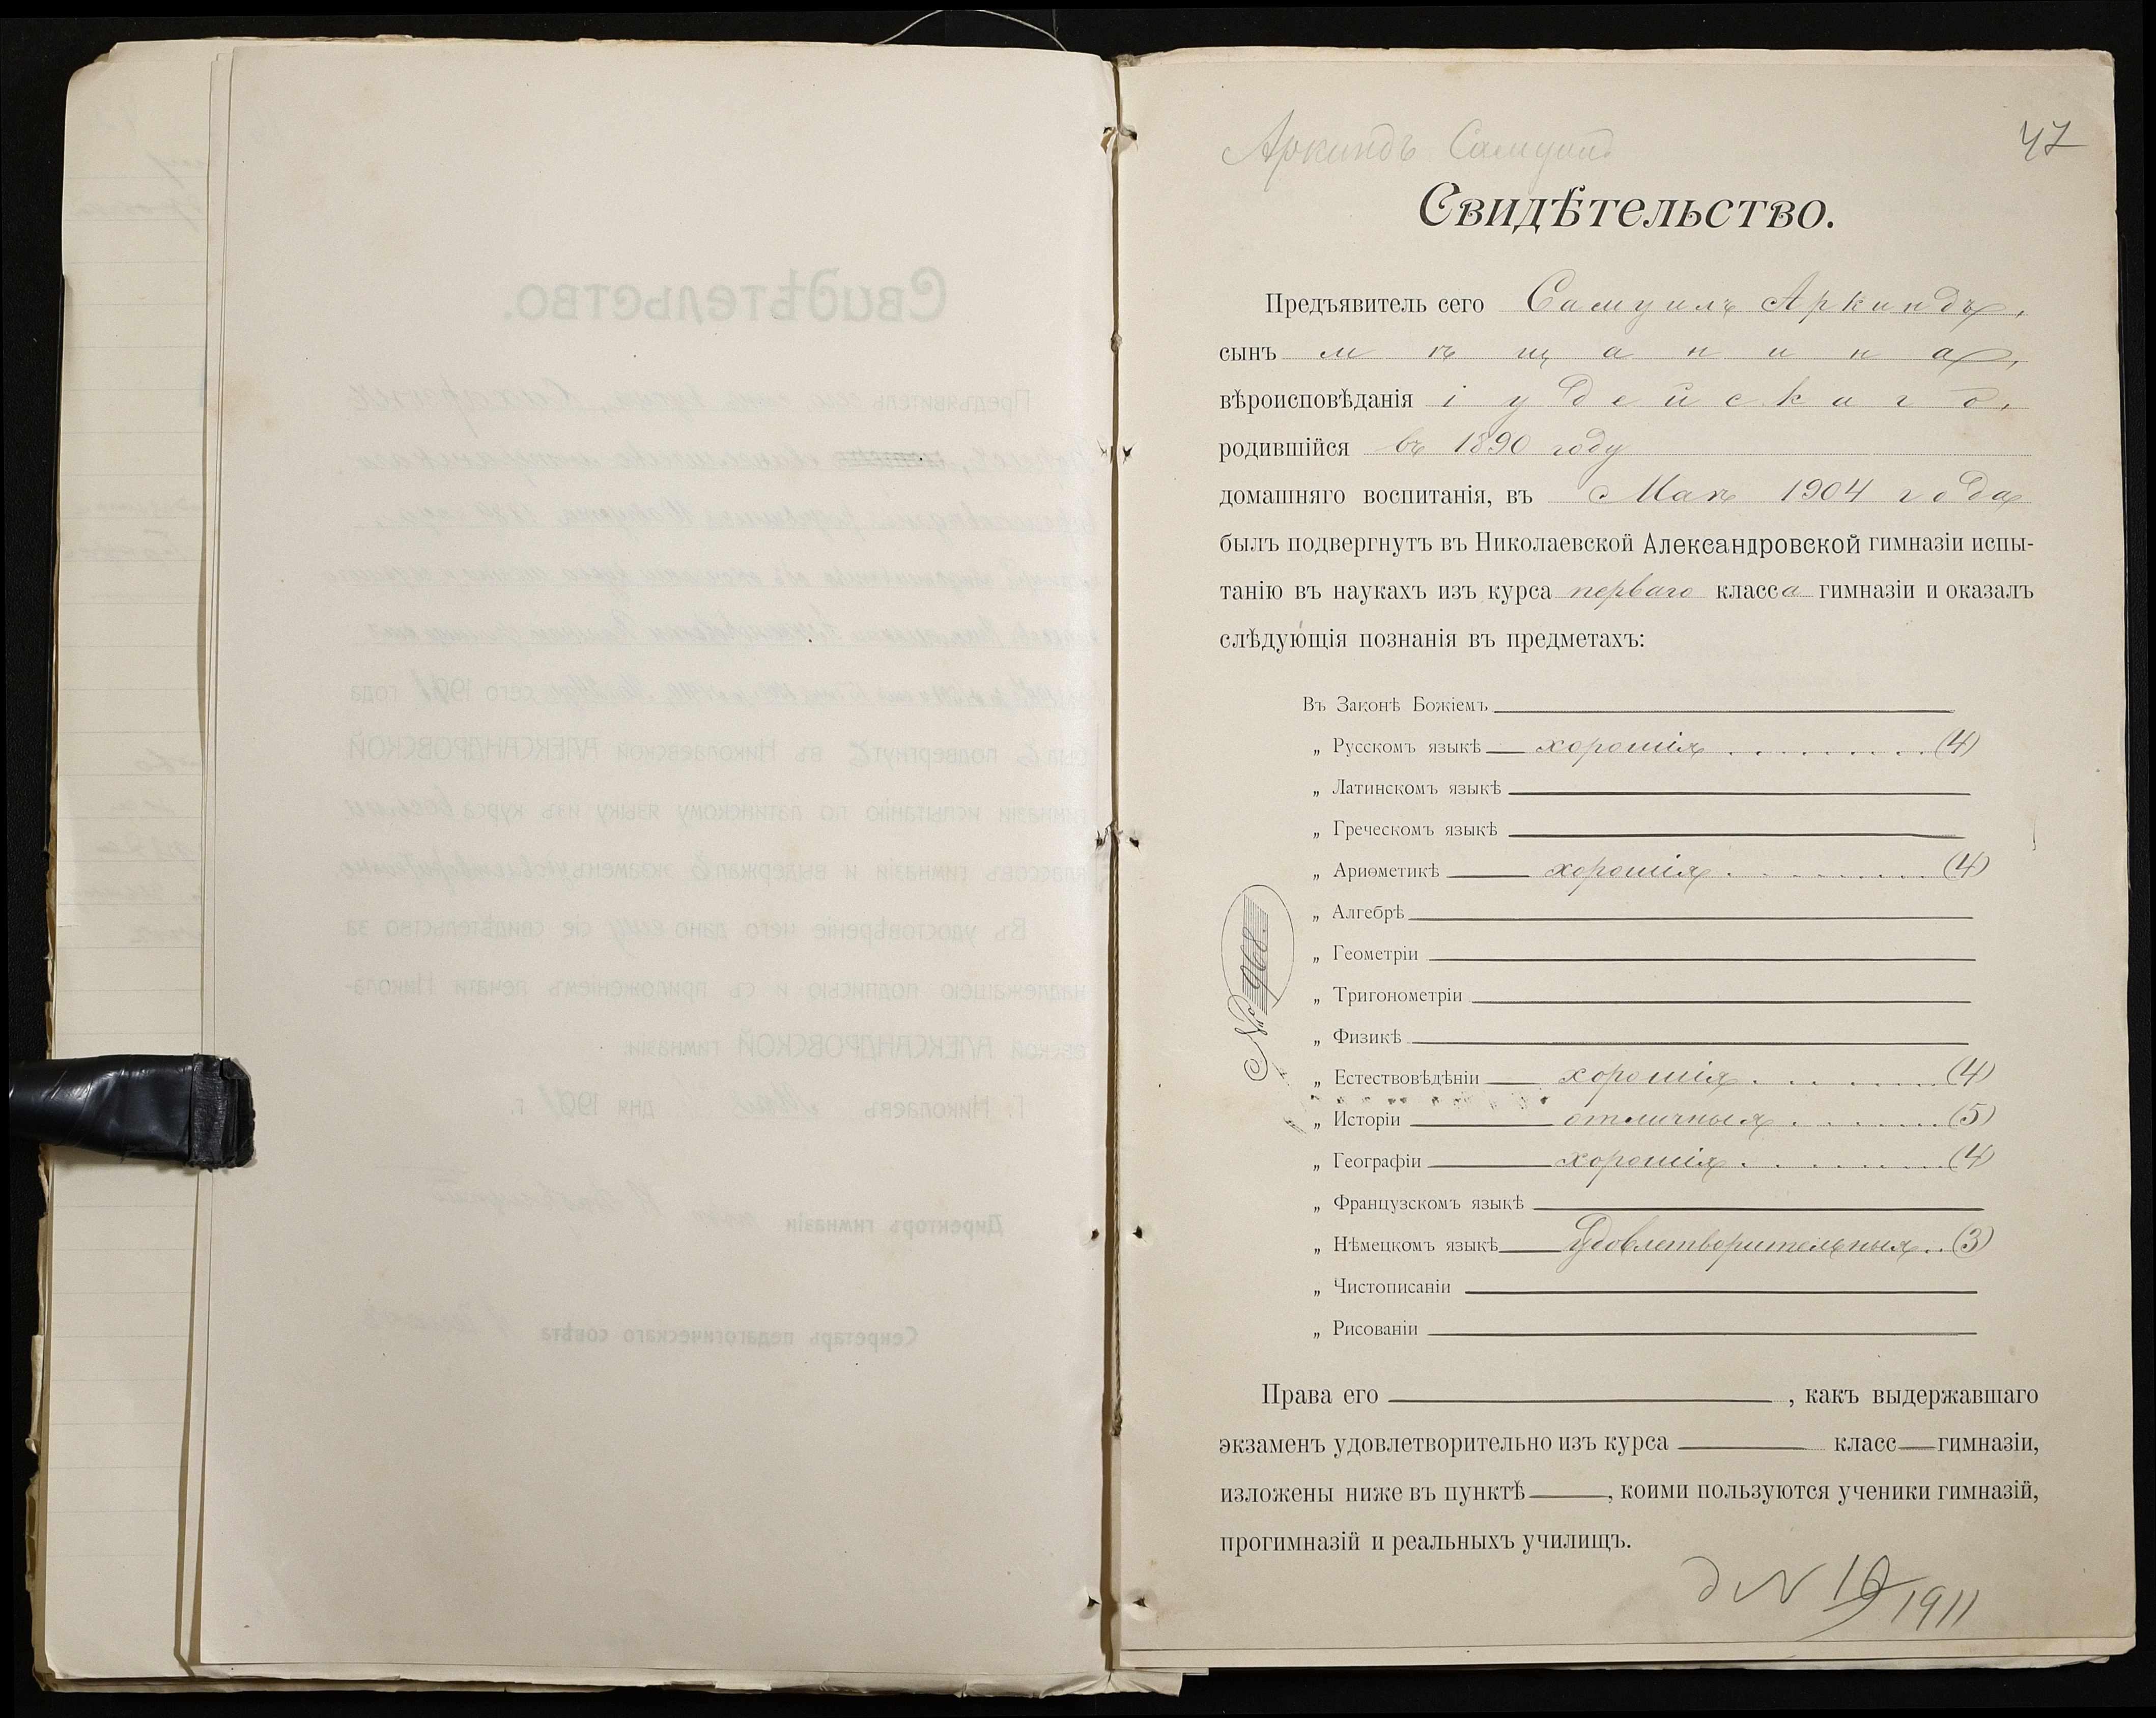 Аркиндъ Самуилъ
47
Свидѣтельство.
Предъявитель сего Самуилъ Аркиндъ,
сынъ мѣщанина,
вѣроисповѣданія іудейскаго,
родившійся въ 1890 году
домашняго воспитанія, въ Маѣ 1904 года
былъ подвергнутъ въ Николаевской Александровской гимназіи испы-
танію въ наукахъ изъ курса перваго класса гимназіи и оказалъ
слѣдующія познанія въ предметахъ:
Въ Законѣ Божіемъ
„ Русскомъ языкѣ хорошія (4)
„ Латинскомъ языкѣ
„ Греческомъ языкѣ
„ Ариѳметикѣ хорошія (4)
„ Алгебрѣ
№ 968.
„ Геометріи
„ Тригонометріи
„ Физикѣ
„ Естествовѣдѣніи хорошія (4)
„ Исторіи отличныя (5)
„ Географіи хорошія (4)
„ Французскомъ языкѣ
„ Нѣмецкомъ языкѣ удовлетворительныя (3)
„ Чистописаніи
„ Рисованіи
Права его , какъ выдержавшаго
экзаменъ удовлетворительно изъ курса класс гимназіи,
изложены ниже въ пунктѣ , коими пользуются ученики гимназій,
прогимназій и реальныхъ училищъ.
1911